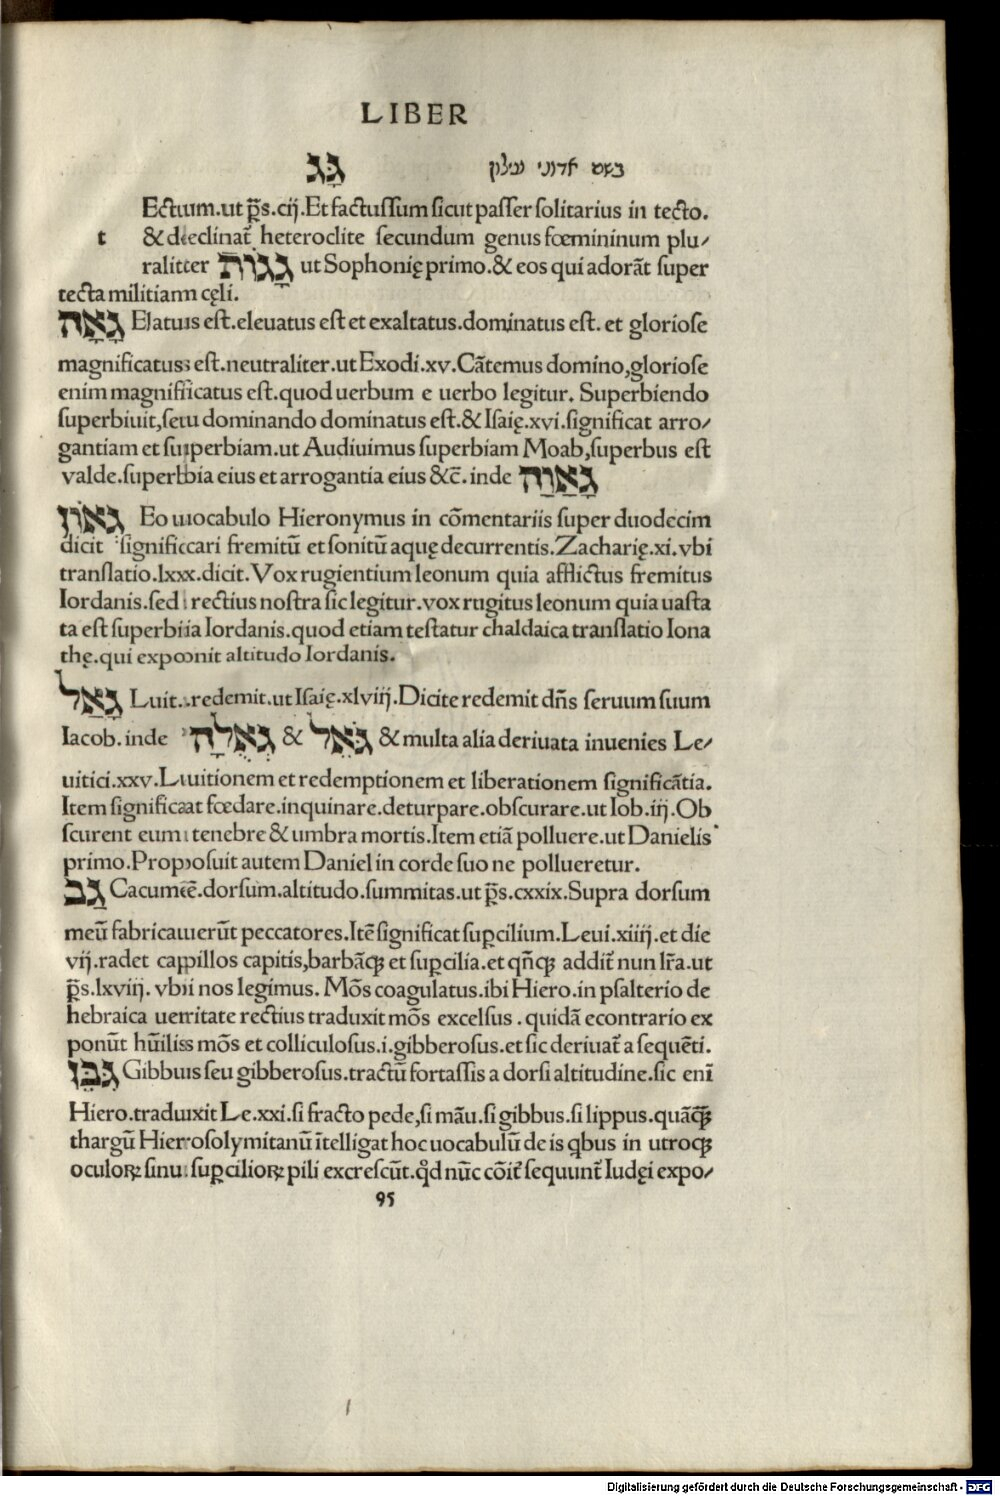 LIBER
גָּג בשם אדוני
Ectum.ut p̃s.cij.Et factus sum sicut passer solitarius in tecto.
t & declinat̃ heteroclite secundum genus fœmininum plu/
raliter גָגוֹת ut Sophonię primo.& eos qui adorãt super
tecta militiam cęli.
גָאָה Elatus est.eleuatus est et exaltatus.dominatus est. et gloriose
magnificatus est.neutraliter.ut Exodi.xv.Cãtemus domino,gloriose
enim magnificatus est.quod uerbum e uerbo legitur. Superbiendo
superbiuit,seu dominando dominatus est.& Isaię.xvi.significat arro/
gantiam et superbiam.ut Audiuimus superbiam Moab,superbus est
valde.superbia eius et arrogantia eius &c̃. inde גַאֲוַה
גָאוֹן Eo uocabulo Hieronymus in cõmentariis super duodecim
dicit significari fremitũ et sonitũ aquę decurrentis.Zacharię.xi.vbi
translatio.lxxx.dicit.Vox rugientium leonum quia afflictus fremitus
Iordanis.sed rectius nostra sic legitur.vox rugitus leonum quia uasta
ta est superbia Iordanis.quod etiam testatur chaldaica translatio Iona
thę.qui exponit altitudo Iordanis.
גָאַל Luit.redemit.ut Isaię.xlviij.Dicite redemit dñs seruum suum
Iacob.inde גְאֻלָה & גֹּאֵל & multa alia deriuata inuenies Le/
uitici.xxv.Luitionem et redemptionem et liberationem significãtia.
Item significat fœdare.inquinare.deturpare.obscurare.ut Iob.iij.Ob
scurent eum tenebre & umbra mortis.Item etiã polluere.ut Danielis
primo.Proposuit autem Daniel in corde suo ne pollueretur.
גַב Cacumẽ.dorsum.altitudo.summitas.ut p̃s.cxxix.Supra dorsum
meũ fabricauerũt peccatores.Itẽ significat suꝑcilium.Leui.xiiij.et die
vij.radet capillos capitis,barbãqꝫ et suꝑcilia.et qñqꝫ addit̃ nun lr̃a.ut
p̃s.lxviij. vbi nos legimus. Mõs coagulatus.ibi Hiero.in psalterio de
hebraica ueritate rectius traduxit mõs excelsus . quidã econtrario ex
ponũt hũilis mõs et colliculosus.i.gibberosus.et sic deriuat̃ a sequẽti.
גִּבֵּן Gibbus seu gibberosus.tractũ fortassis a dorsi altitudine.sic enĩ
Hiero.traduxit Le.xxi.si fracto pede,si mãu.si gibbus.si lippus.quãqꝫ
thargũ Hierosolymitanũ ĩtelligat hoc uocabulũ de is qbus in utroqꝫ
oculoꝝ sinu suꝑcilioꝝ pili excrescũt.qđ nũc cõit̃ sequunt̃ Iudęi expo/
95
Digitalisierung gefördert durch die Deutsche Forschungsgemeinschaft - DFG